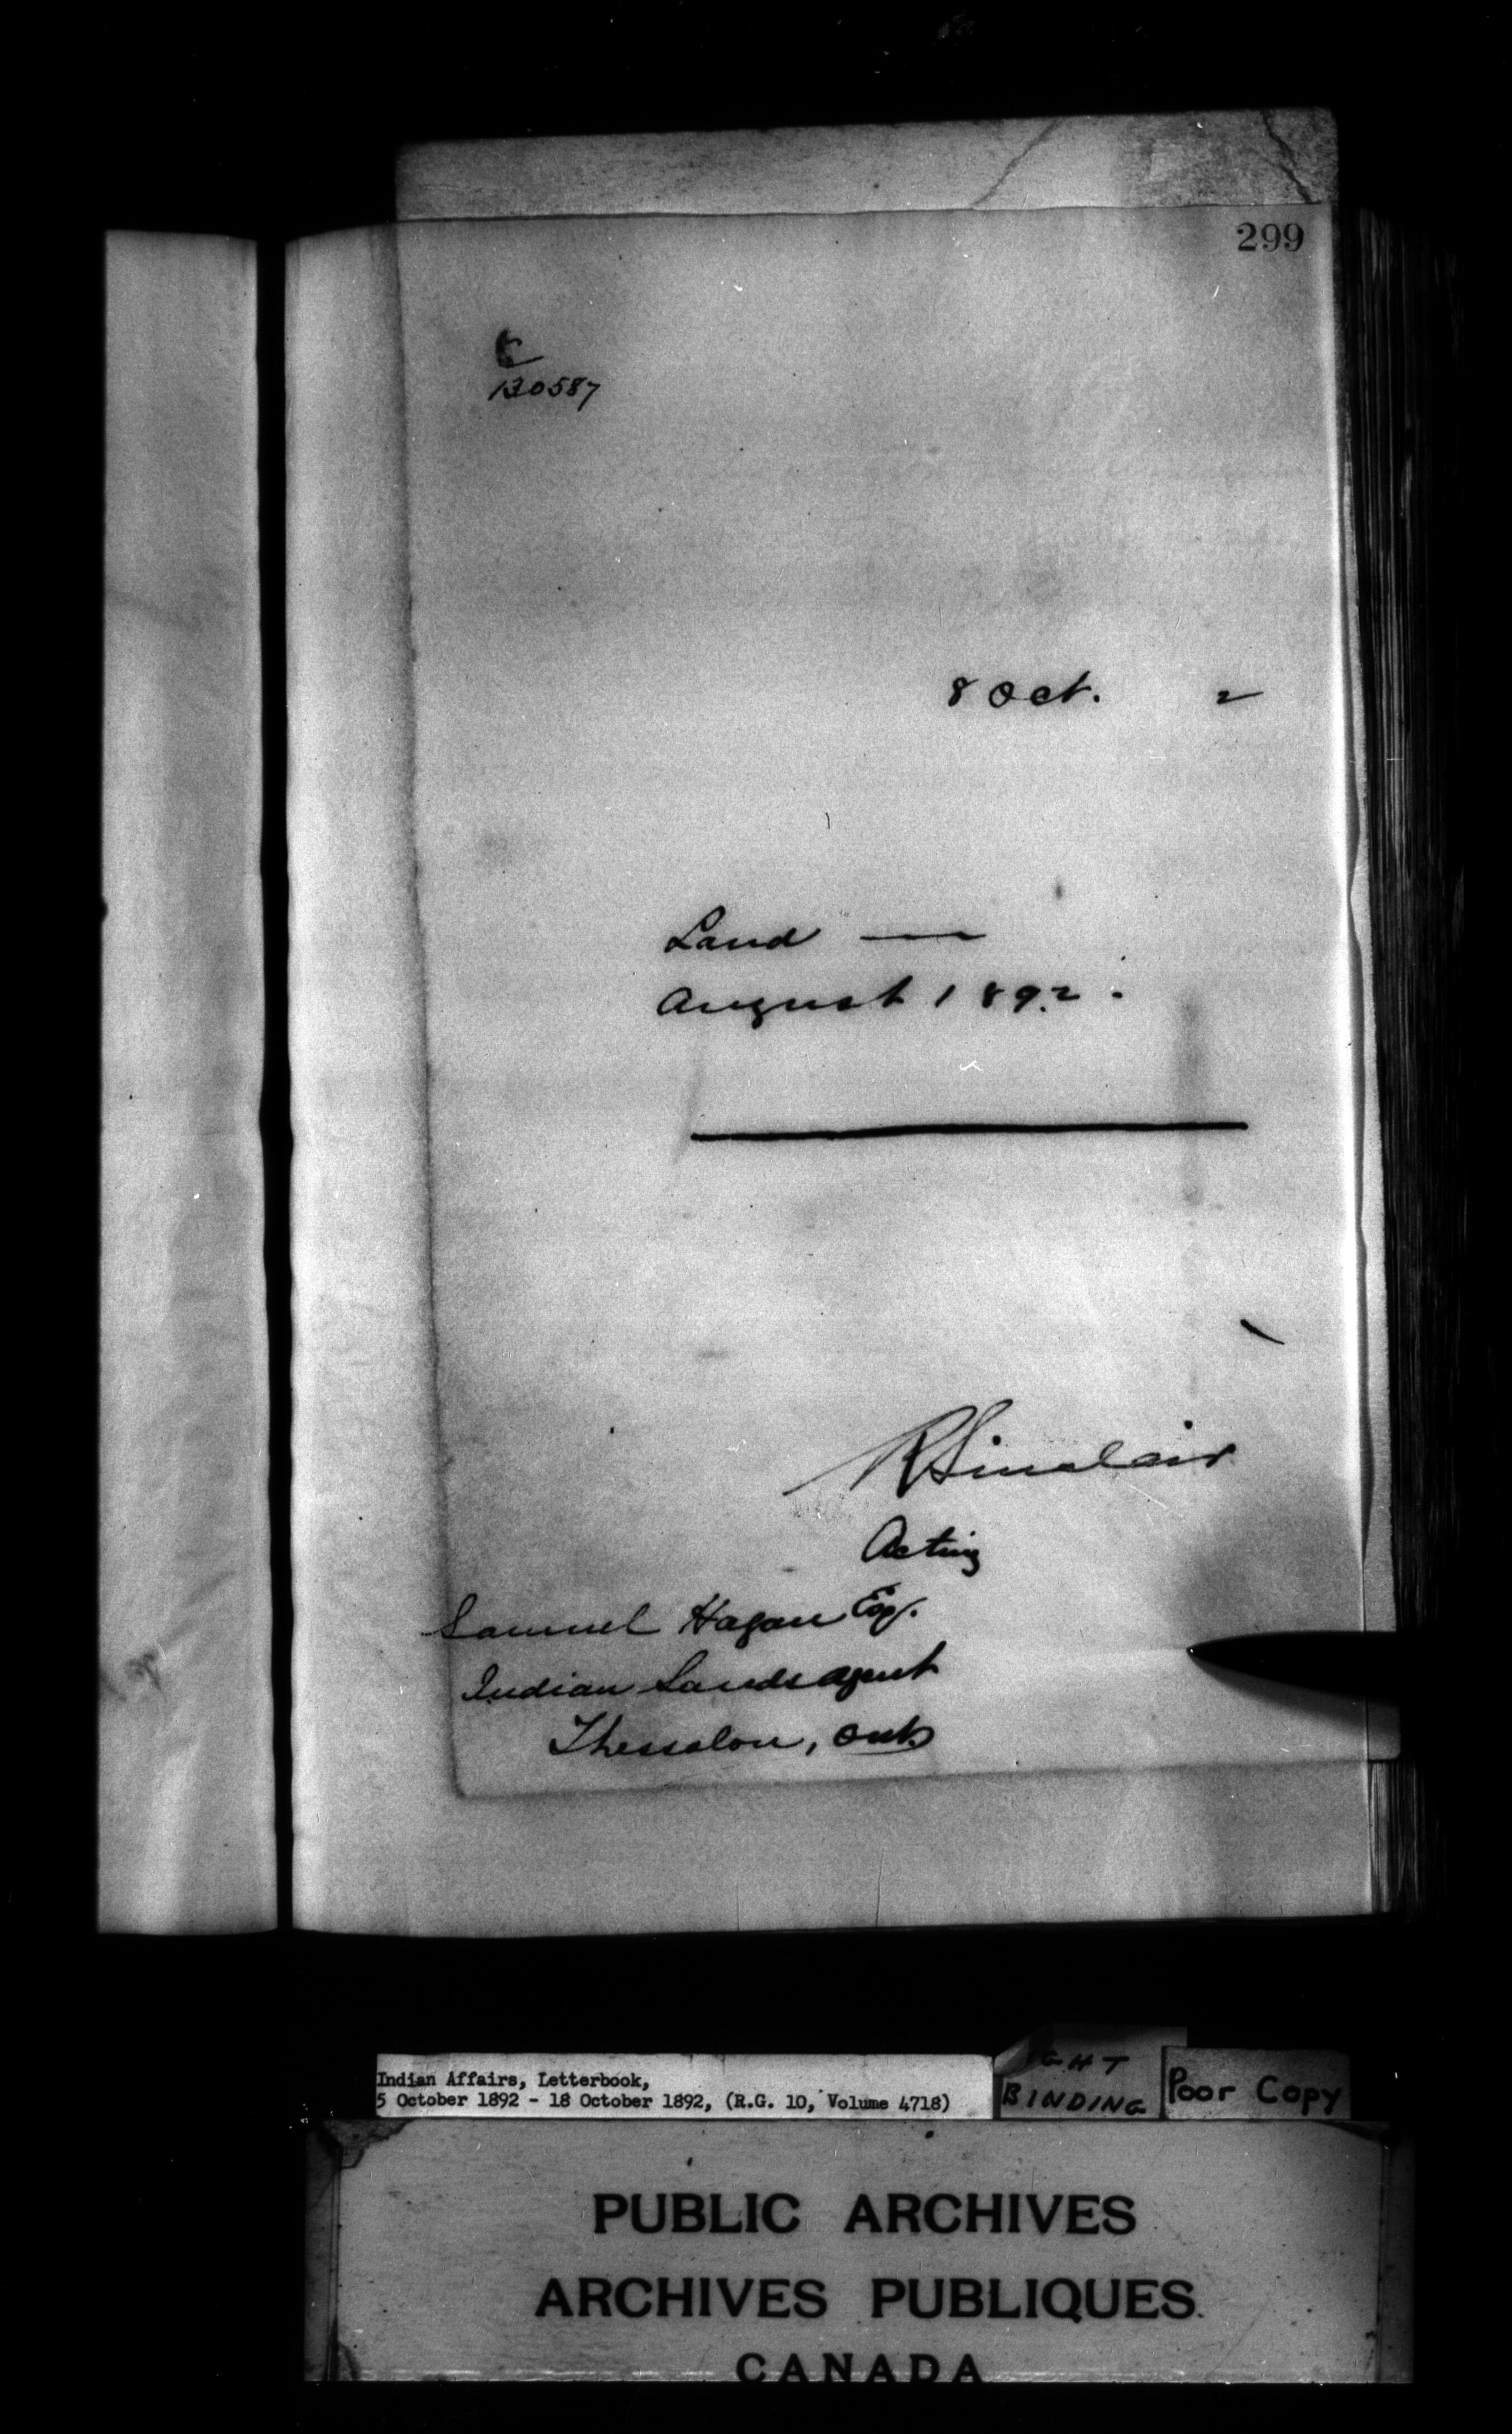 299
130587
8 Oct. 2
Land —
August 1892.
R Sinclair
Acting
Samuel Hagan Esq.
Indian Lands Agent
Thessalon, Ont.
Indian Affairs, Letterbook,
5 October 1892 - 18 October 1892, (R.G. 10, Volume 4718)
GHT
BINDING
Poor Copy
PUBLIC ARCHIVES
ARCHIVES PUBLIQUES
CANADA